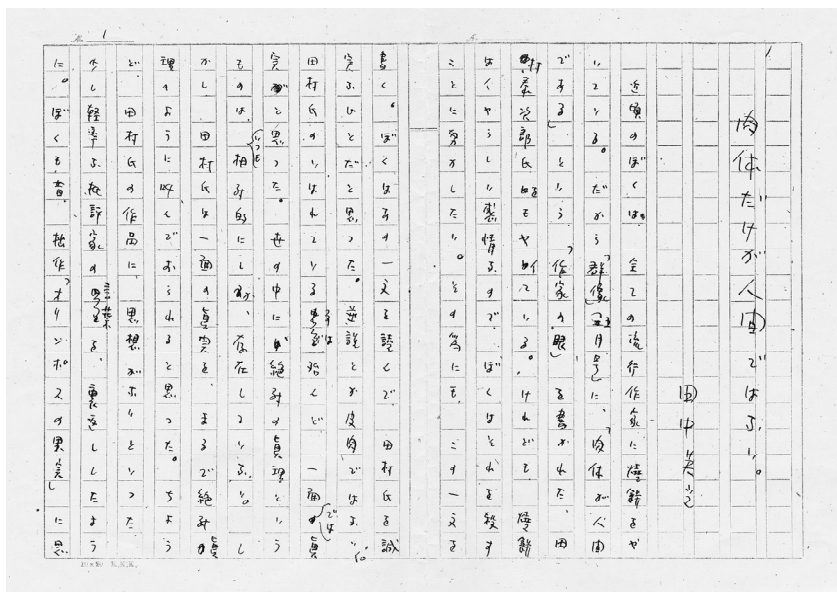 肉体だけが人間ではない。
田中英光
近頃のぼくは、全ての流行作家に燒餅をや
いている。だから「群像」(五月号)に、「肉体が人間
である」という「作家の眼」を書かれた、田
村泰次郎氏にもやいている。けれども燒餅
はくやうしい製情なので、ぼくはそれを殺す
ことに努力したい。その為にも、この一文を
書く。ぼくはその一文を読んで、田村氏を誠
実なひとだと思った。逆説とか皮肉ではない。
田村氏のいはれている事は殆んど、一面では真
実だと思った。世の中に絶対の真理という
ものは、いつも相対的にしか、存在していない。し
かし、田村氏は一面の真実を、まるで絶対の真
理のように叫んでおられると思った。ちよう
ど、田村氏の作品に、思想がないといった、
少し軽率な批評家の言葉を、裏返ししたよう
に。ぼくも昔、拙作「オリンポスの果実」に思
1
20×20